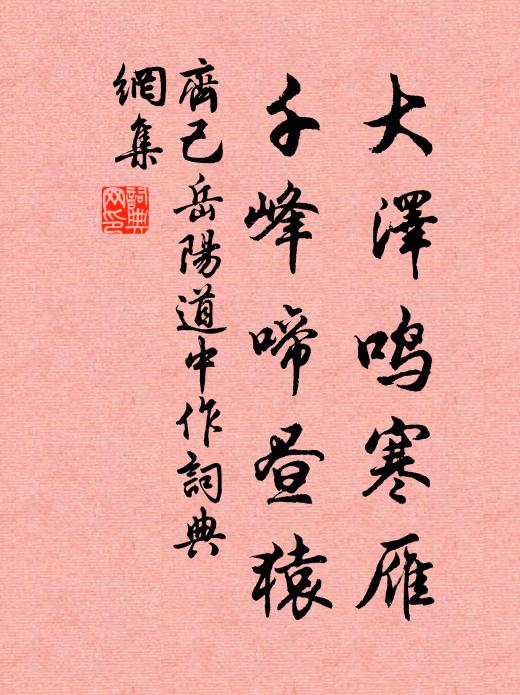 大澤鳴寒雁
千峰啼昼猿
齊己岳陽道中作詞典
網集
詞典網印